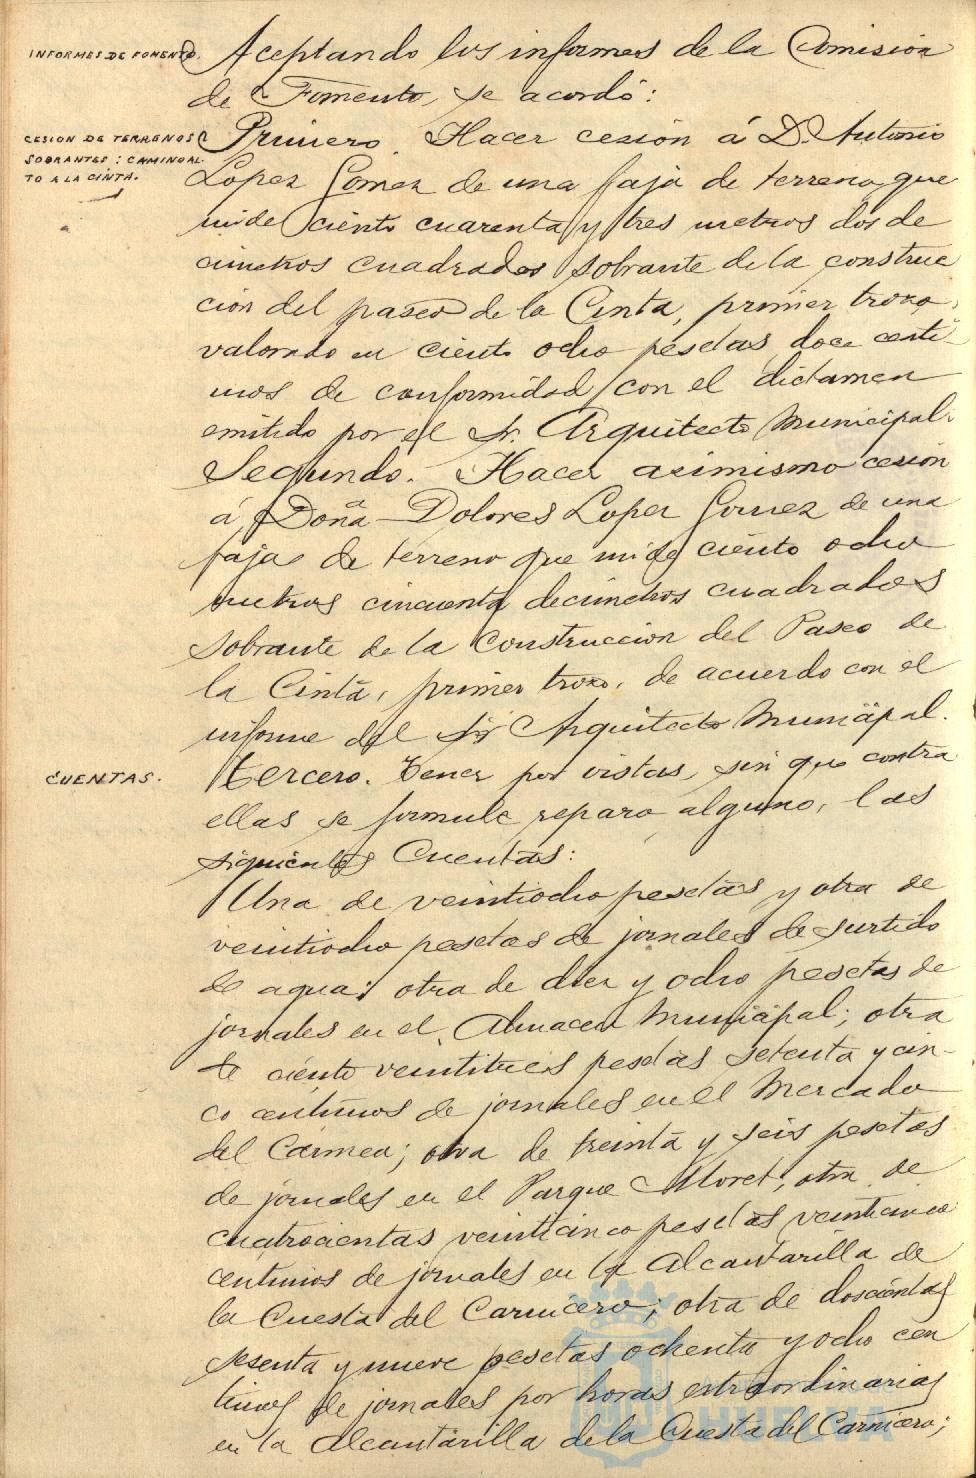 INFORMES DE FOMENTO.
Aceptando los informes de la Comisión
de Fomento, se acordó:
CESION DE TERRENOS
SOBRANTES: CAMINO AL-
TO A LA CINTA.
Primero. Hacer cesión á D. Antonio
Lopez Gomez de una faja de terreno que
mide ciento cuarenta y tres metros dos de
cimetros cuadrados sobrante de la construc
ción del paseo de la Cinta, primer trozo,
valorado en ciento ocho pesetas doce centi-
mos de conformidad con el dictamen
emitido por el Sr. Arquitecto Municipal.
Segundo. Hacer asimismo cesión
á Doña Dolores Lopez Gomez de una
faja de terreno que mide ciento ocho
metros cincuenta decimetros cuadrados
sobrante de la construccion del Paseo de
la Cinta, primer trozo, de acuerdo con el
informe del Sr Arquitecto Municipal.
CUENTAS.
Tercero. Tener por vistas, sin que contra
ellas se formule reparo alguno, las
siguientes Cuentas:
Una de veintiocho pesetas y otra de
veintiocho pesetas de jornales de surtido
de agua; otra de diez y ocho pesetas de
jornales en el Almacen Municipal; otra
de ciento veintitres pesetas setenta y cin-
co centimos de jornales en el Mercado
del Carmen; otra de treinta y seis pesetas
de jornales en el Parque Moret; otra de
cuatrocientas veinticinco pesetas veinticinco
centimos de jornales en la Alcantarilla de
la Cuesta del Carnicero; otra de doscientas
sesenta y nueve pesetas ochenta y ocho cen
timos de jornales por horas extraordinarias
en la Alcantarilla de la Cuesta del Carnicero;
HUELVA